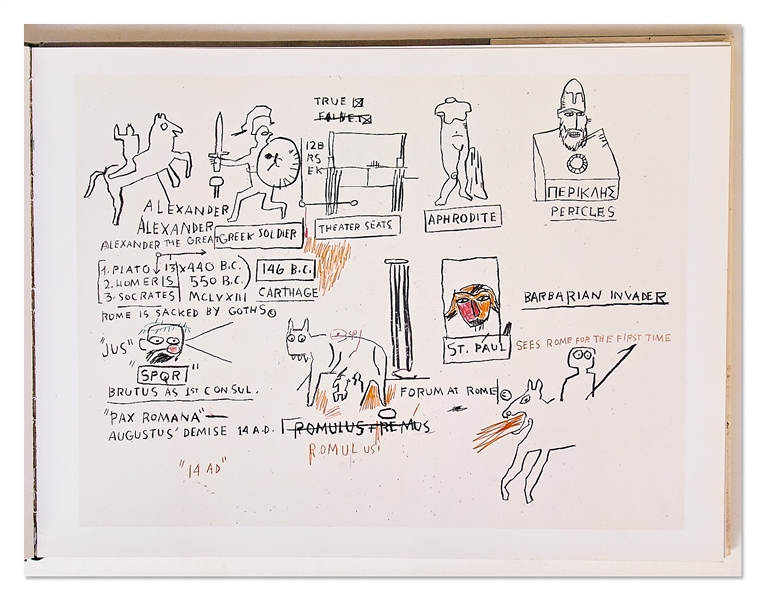 TRUE
FALSE
12B
RS
EK
ALEXANDER
ALEXANDER
ALEXANDER THE GREAT
GREEK SOLDIER
THEATER SEATS
APHRODITE
ΠΕΡΙΚΛΗΣ
PERICLES
1. PLATO 13 x 440 B.C.
2. HOMER IS 550 B.C.
3. SOCRATES MCLVXIII
146 B.C.
CARTHAGE
ROME IS SACKED BY GOTHS©
"JUS"
SPQR"
BRUTUS AS 1ST CONSUL.
"PAX ROMANA"
AUGUSTUS' DEMISE 14 A.D.
"14 AD"
ROMULUS + REMUS
ROMULUS
ST. PAUL
FORUM AT ROME©
BARBARIAN INVADER
SEES ROME FOR THE FIRST TIME